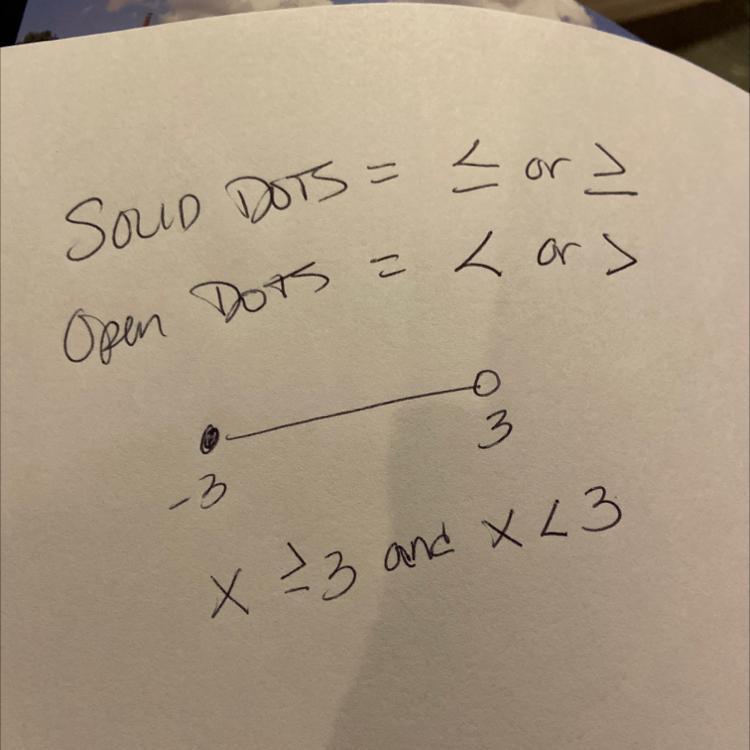 SOLID DOTS = ≤ or ≥
Open DOTS = < or >
-3 3
X ≥3 and X < 3